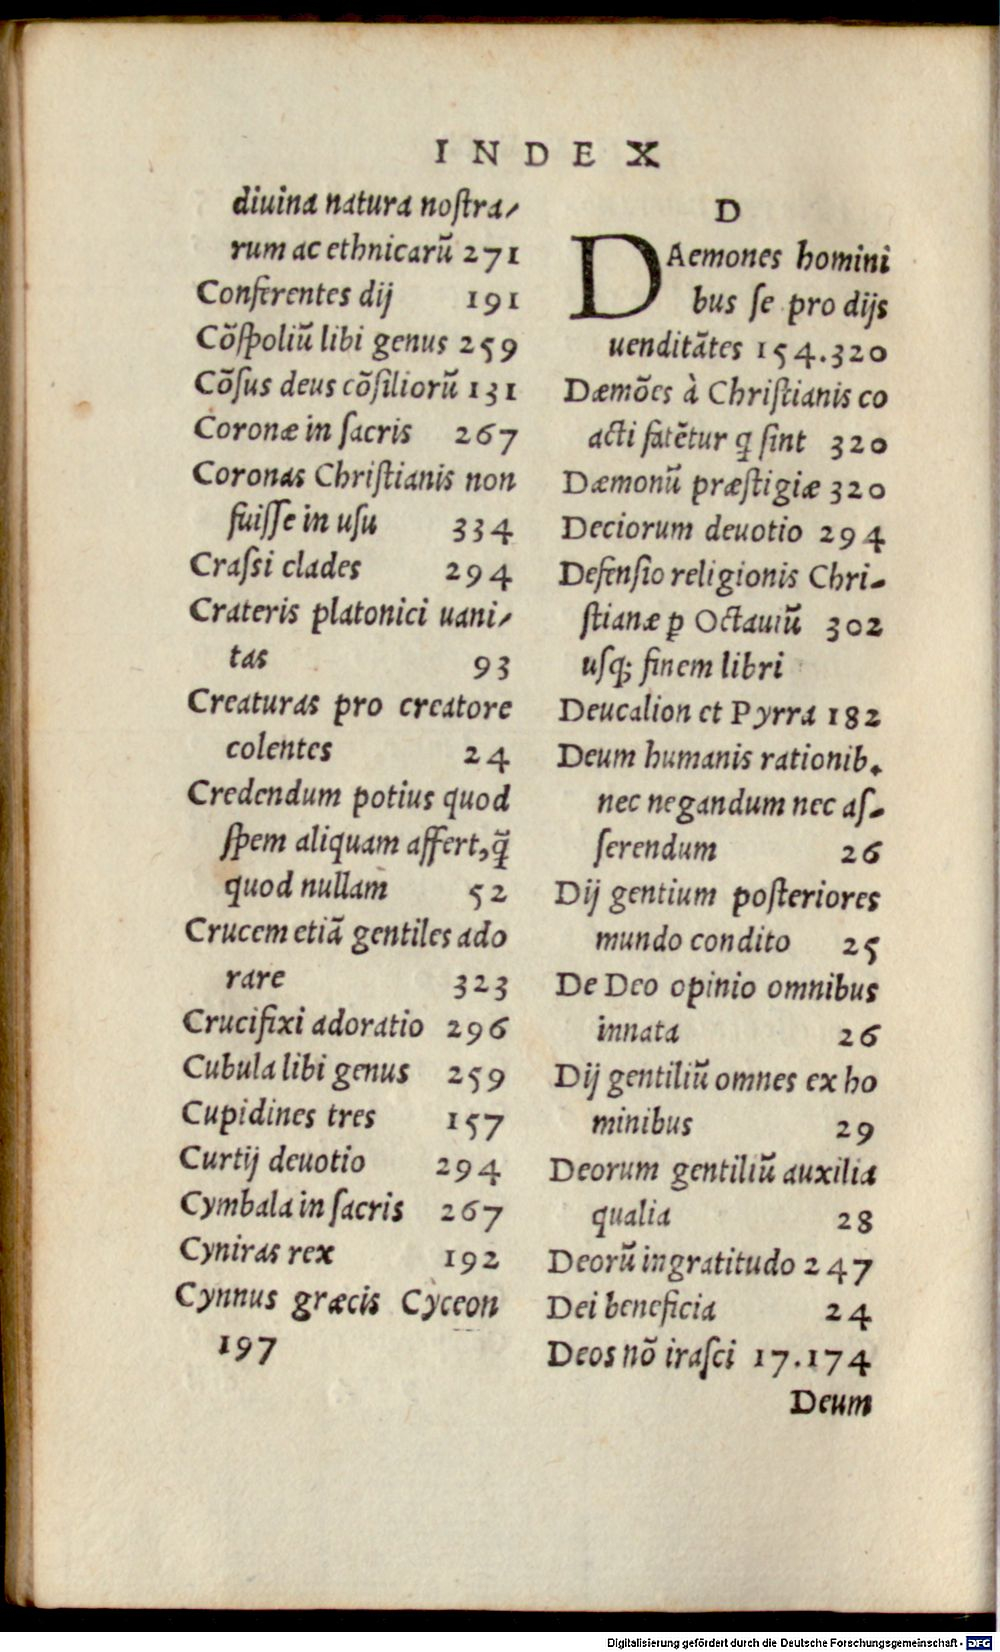 INDEX
diuina natura noſtra-
rum ac ethnicarũ 271
Conferentes dij 191
Cõſpoliũ libi genus 259
Cõſus deus cõſiliorũ 131
Coronæ in ſacris 267
Coronas Chriſtianis non
fuiſſe in uſu 334
Craſsi clades 294
Crateris platonici uani-
tas 93
Creaturas pro creatore
colentes 24
Credendum potius quod
ſpem aliquam affert, q̃
quod nullam 52
Crucem etiã gentiles ado
rare 323
Crucifixi adoratio 296
Cubula libi genus 259
Cupidines tres 157
Curtij deuotio 294
Cymbala in ſacris 267
Cyniras rex 192
Cynnus græcis Cyceon
197
D
DAemones homini
bus ſe pro dijs
uenditãtes 154.320
Dæmões à Chriſtianis co
acti fatẽtur q ſint 320
Dæmonũ præſtigiæ 320
Deciorum deuotio 294
Defenſio religionis Chri-
ſtianæ ꝑ Octauiũ 302
uſqꝫ finem libri
Deucalion et Pyrra 182
Deum humanis rationib.
nec negandum nec aſ-
ſerendum 26
Dij gentium poſteriores
mundo condito 25
De Deo opinio omnibus
innata 26
Dij gentiliũ omnes ex ho
minibus 29
Deorum gentiliũ auxilia
qualia 28
Deorũ ingratitudo 247
Dei beneficia 24
Deos nõ iraſci 17.174
Deum
Digitalisierung gefördert durch die Deutsche Forschungsgemeinschaft - DFG